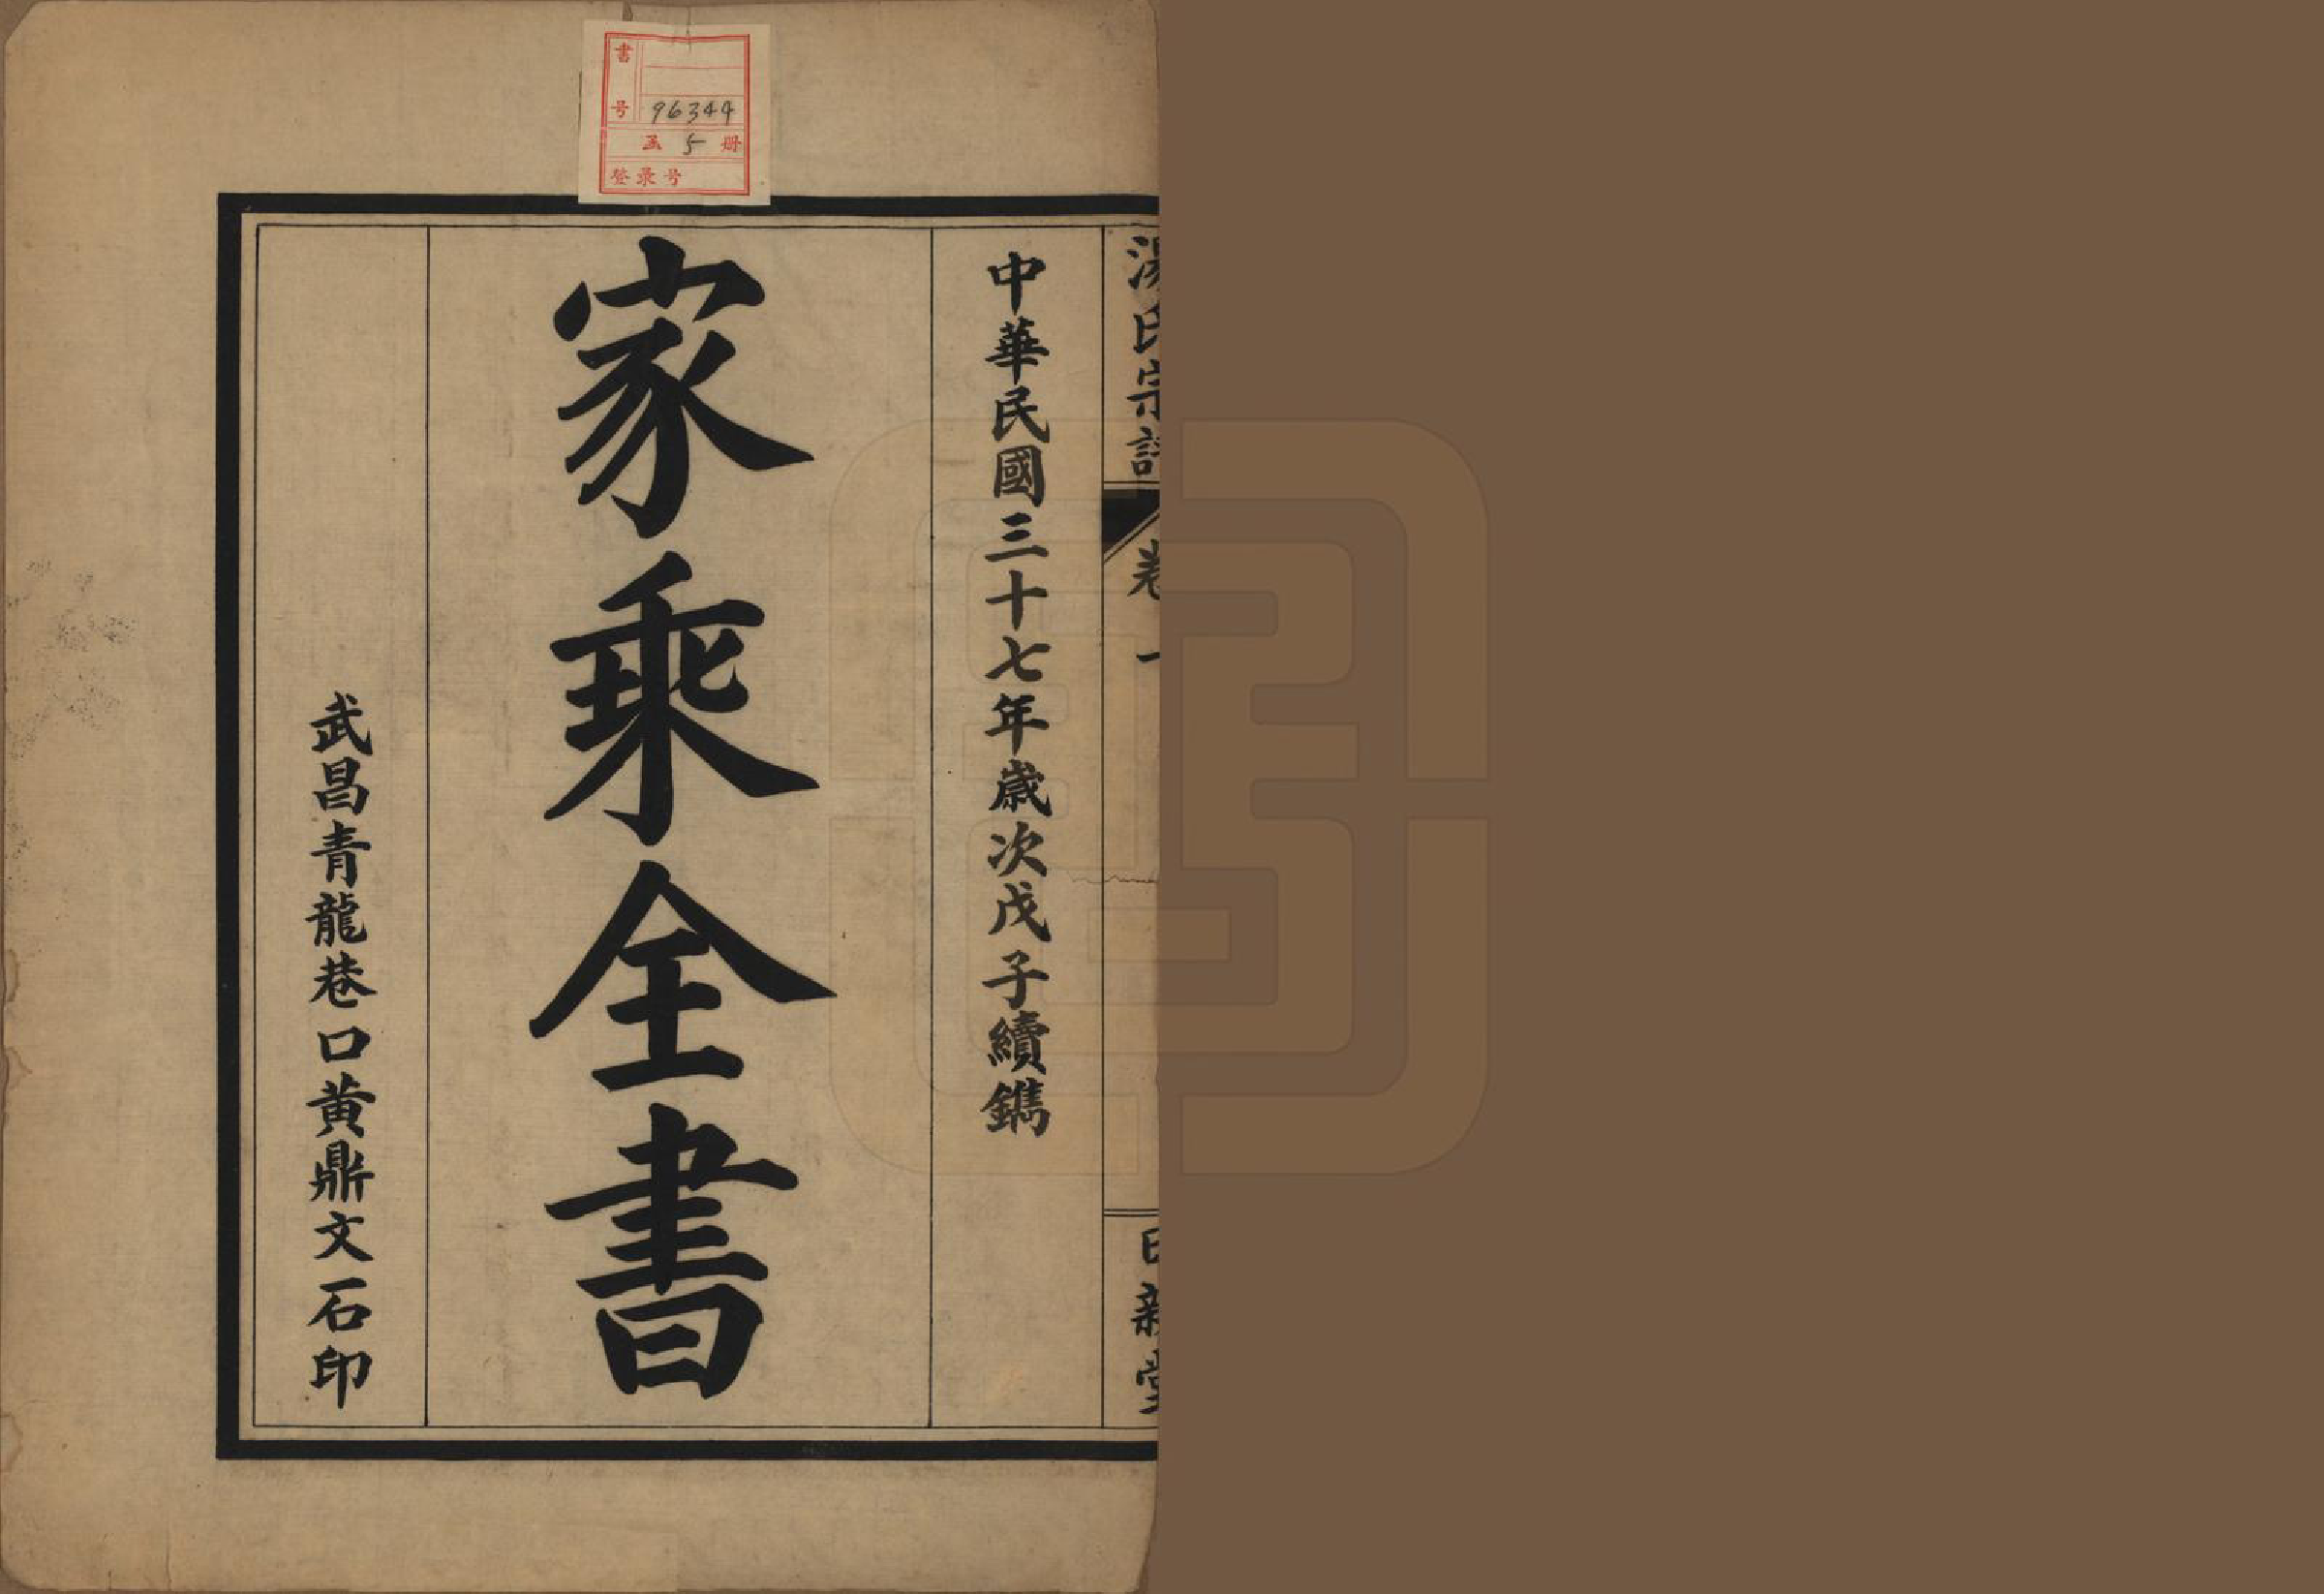 書号 96344
函 5 册
登录号
湯氏宗譜
卷一
日新堂
中華民國三十七年歲次戊子續鐫
家乘全書
武昌青龍巷口黄鼎文石印